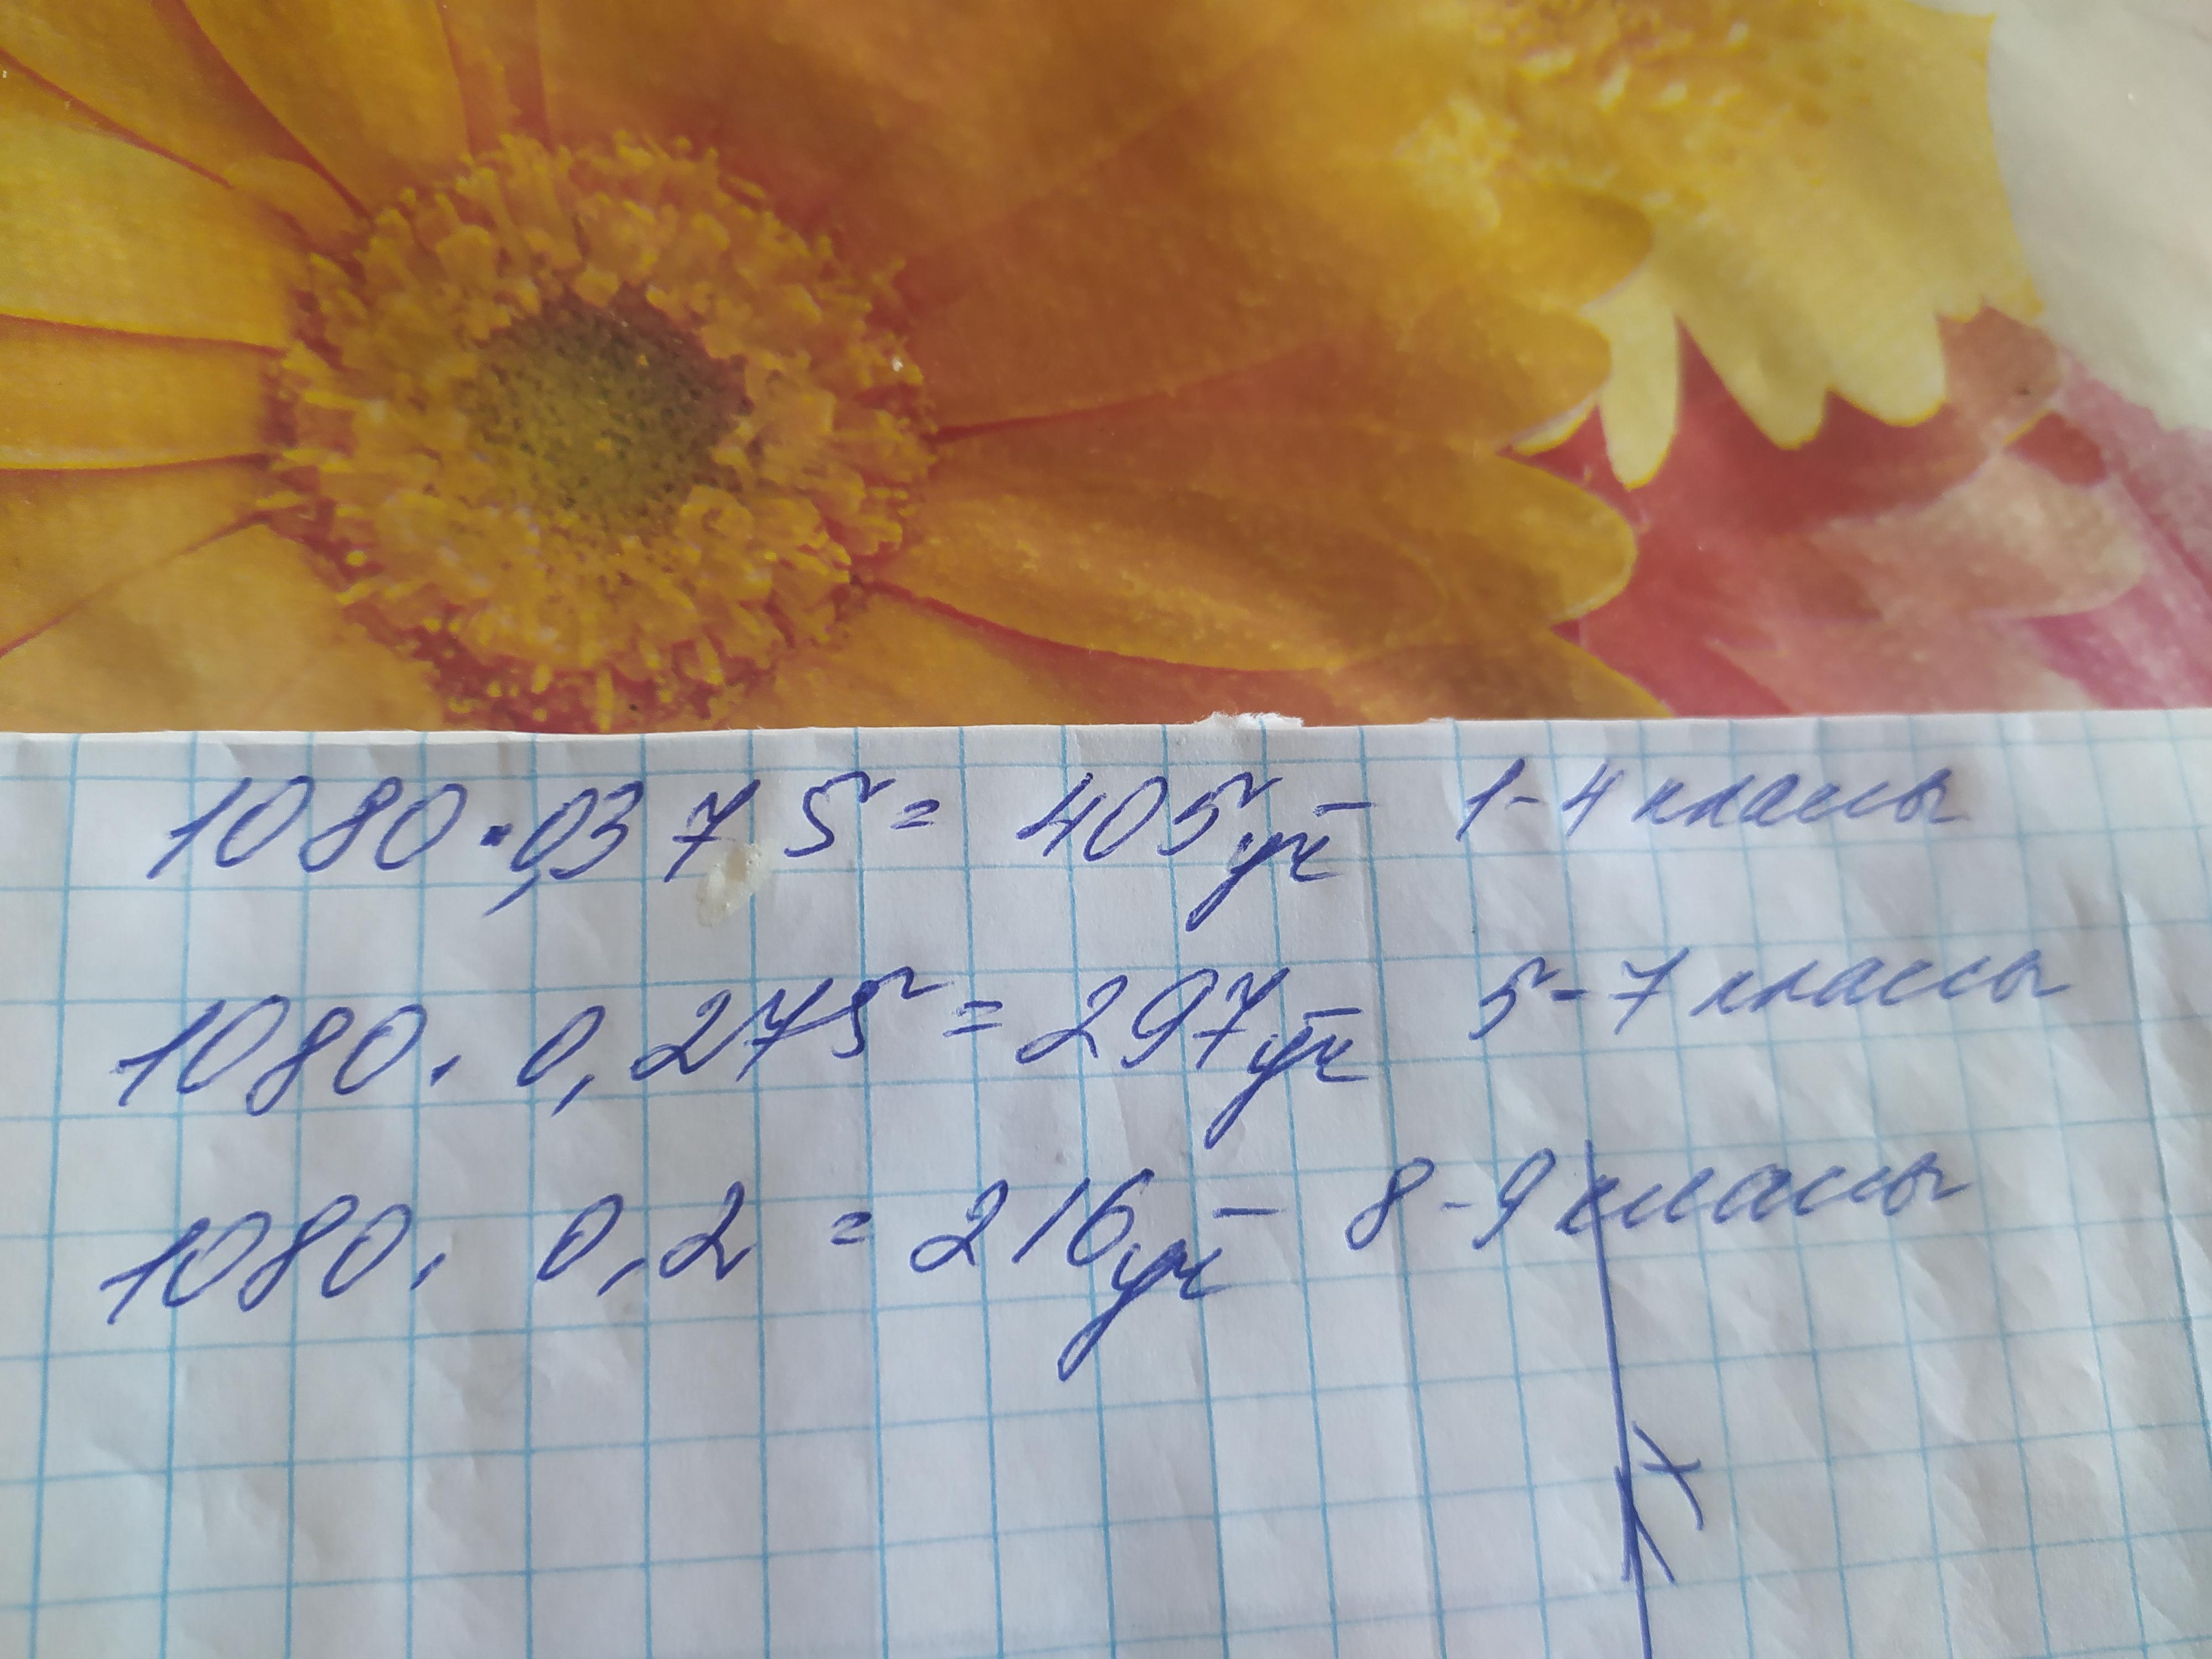 1080 · 0,375 = 405 уч - 1-4 классы
1080 · 0,275 = 297 уч - 5-7 классы
1080 · 0,2 = 216 уч - 8-9 классы